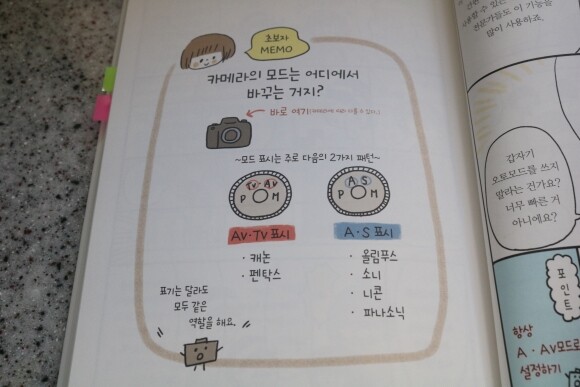 초보자
MEMO
카메라의 모드는 어디에서
바꾸는 거지?
바로 여기
~모드 표시는 주로 다음의 2가지 패턴~
Tv·Av
P M
A S
P M
AV·TV 표시
A·S 표시
· 캐논
· 펜탁스
· 올림푸스
· 소니
· 니콘
· 파나소닉
표기는 달라도
모두 같은
역할을 해요.
전문가들도 이 기능을
많이 사용하죠.
갑자기
오토모드를 쓰지
말라는 건가요?
너무 빠른 거
아니에요?
포인트
항상
A·AV모드로
설정하기